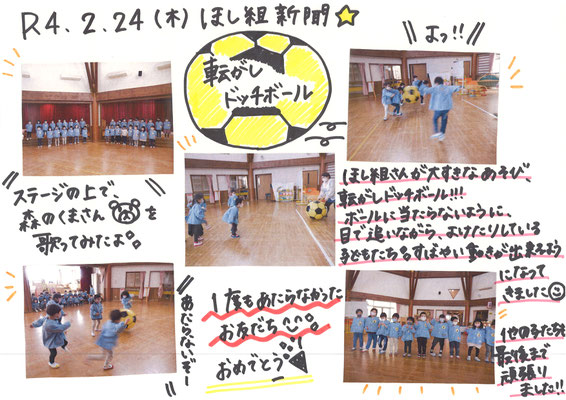 R4.2.24(木)ほし組新聞☆
転がし
ドッチボール
よっ!!
ステージの上で、
森のくまさんを
歌ってみたよ。
ほし組さんが大すきなあそび、
転がしドッチボール!!!
ボールに当たらないように、
目で追いながら、よけたりしている
子どもたち。すばやい動きが出来るよう
になって
きました
あたらないぞー
1度もあたらなかった
お友だち
おめでとう
他の子たちも
最後まで
頑張り
ました!!